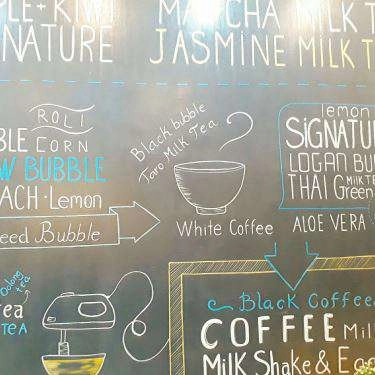 PLE+KIWI
MATCHA MILK T
NATURE
JASMINE MILK T
ROLI
BLE CORN
W BUBBLE
EACH·Lemon
eed Bubble
Black bubble
Taro Milk Tea
White Coffee
lemon
SiGNATUR
LOGAN BU
THAI MILK TE
Green
ALOE VERA
Oolong
tea
ea
TEA
Black Coffee
COFFEE Mil
MiLK Shake & Egg